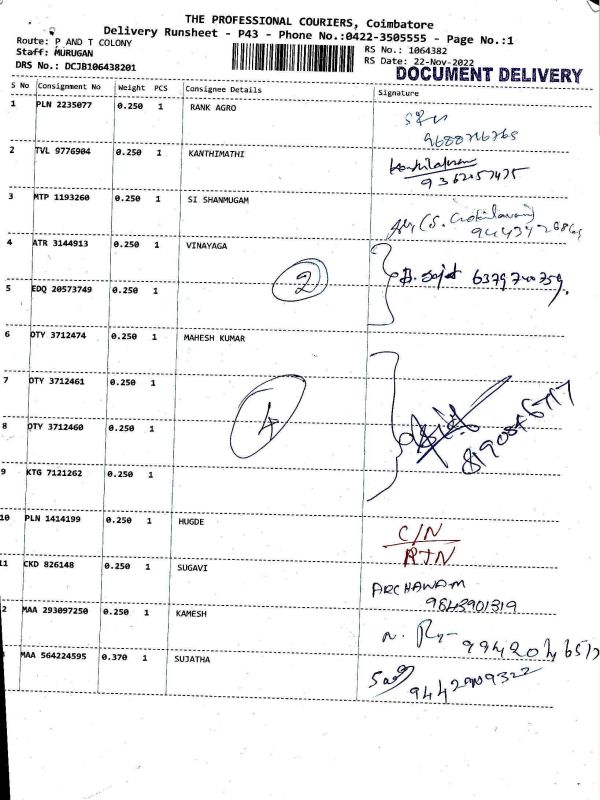 THE PROFESSIONAL COURIERS, Coimbatore
Delivery Runsheet - P43 - Phone No.:0422-3505555 - Page No.:1
Route: P AND T COLONY
RS No.: 1064382
Staff: MURUGAN
RS Date: 22-Nov-2022
DRS No.: DCJB106438201
DOCUMENT DELIVERY
S No Consignment No Weight PCS Consignee Details Signature
1 PLN 2235077 0.250 1 RANK AGRO
2 TVL 9776904 0.250 1 KANTHIMATHI
9362057475
3 MTP 1193260 0.250 1 SI SHANMUGAM
4 ATR 3144913 0.250 1 VINAYAGA
2
5 EDQ 20573749 0.250 1
6 OTY 3712474 0.250 1 MAHESH KUMAR
7 OTY 3712461 0.250 1
4
8 OTY 3712460 0.250 1
9 KTG 7121262 0.250 1
10 PLN 1414199 0.250 1 HUGDE C/N
RTN
11 CKD 826148 0.250 1 SUGAVI
ARCHANA M
9643901319
2 MAA 293097250 0.250 1 KAMESH
MAA 564224595 0.370 1 SUJATHA